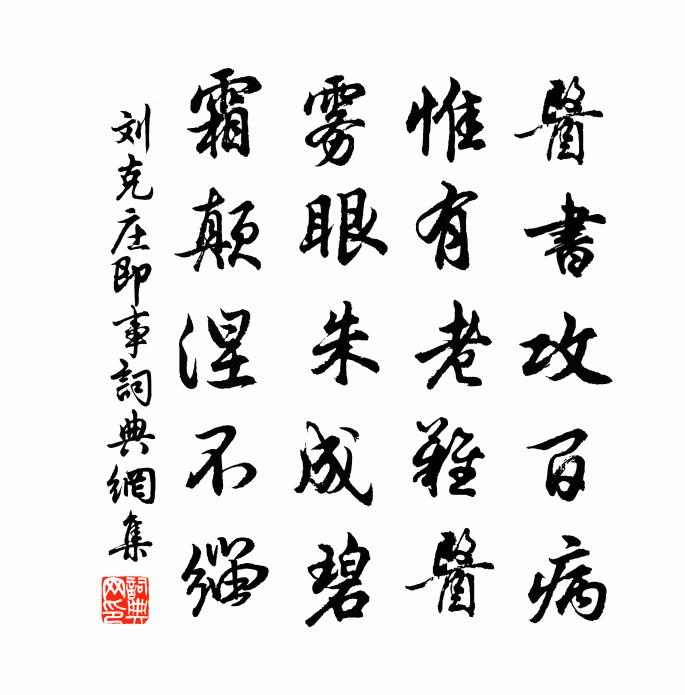 醫書攻百病
惟有老難醫
雾眼朱成碧
霜颠涅不缁
刘克庄即事詞典網集
詞典
网印